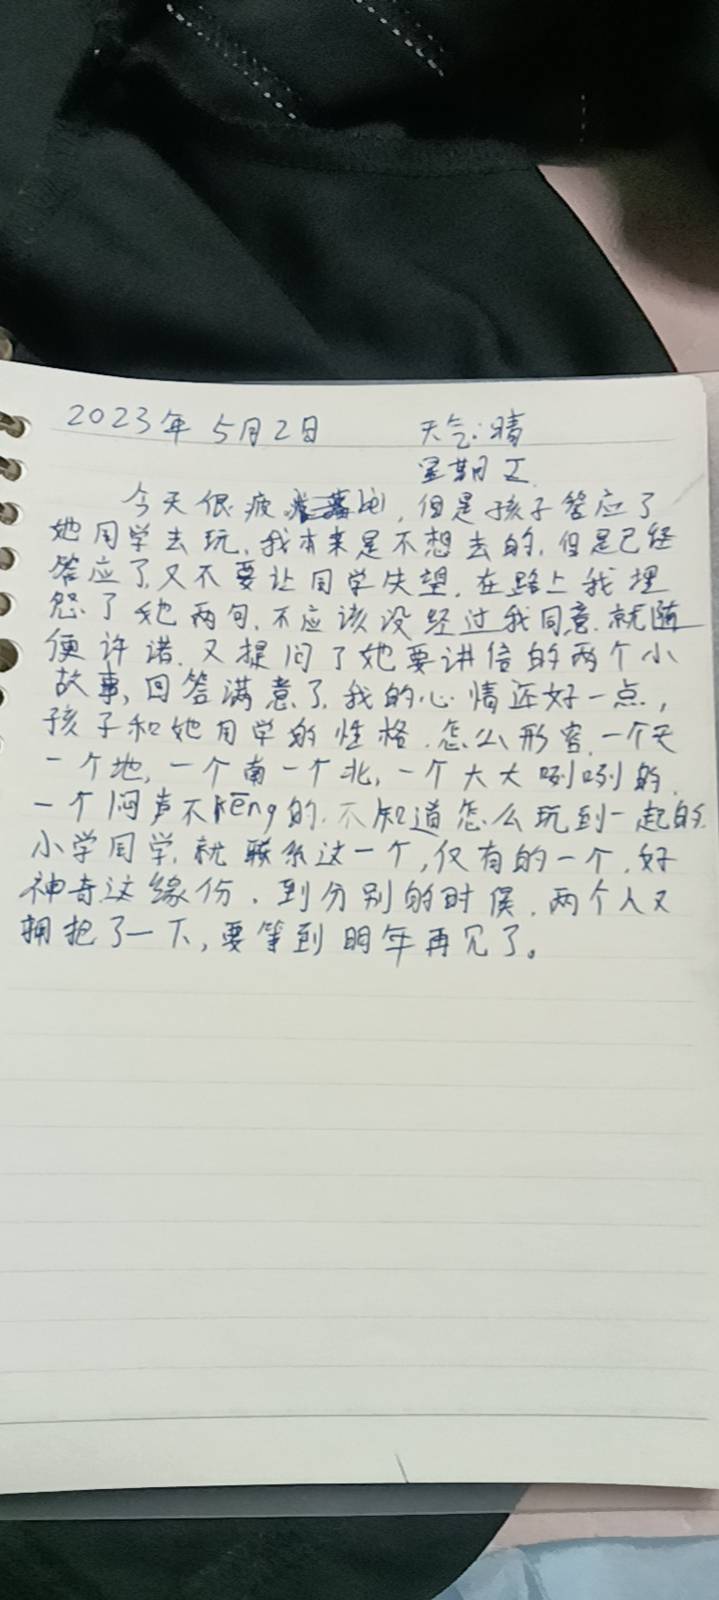 2023年 5月2日 天气:晴
星期五
今天很疲 ，但是孩子答应了
她同学去玩，我本来是不想去的，但是已经
答应了，又不要让同学失望，在路上我埋
怨了她两句，不应该没经过我同意，就随
便许诺，又提问了她要讲信的两个小
故事，回答满意了，我的心情还好一点，
孩子和她同学的性格，怎么形容，一个天
一个地，一个南一个北，一个大大咧咧的，
一个闷声不kēng的，不知道怎么玩到一起的，
小学同学，就联系这一个，仅有的一个，好
神奇这缘份，到分别的时候，两个人又
拥抱了一下，要等到明年再见了。